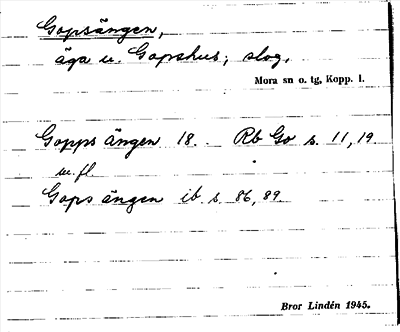 Gopsängen,
äga u. Gopshus; slog.
Mora sn o. tg, Kopp. l.
Gopps ängen 18. Rb Go s. 11, 19.
m. fl.
Gops ängen ib. s. 86, 89.
Bror Lindén 1945.